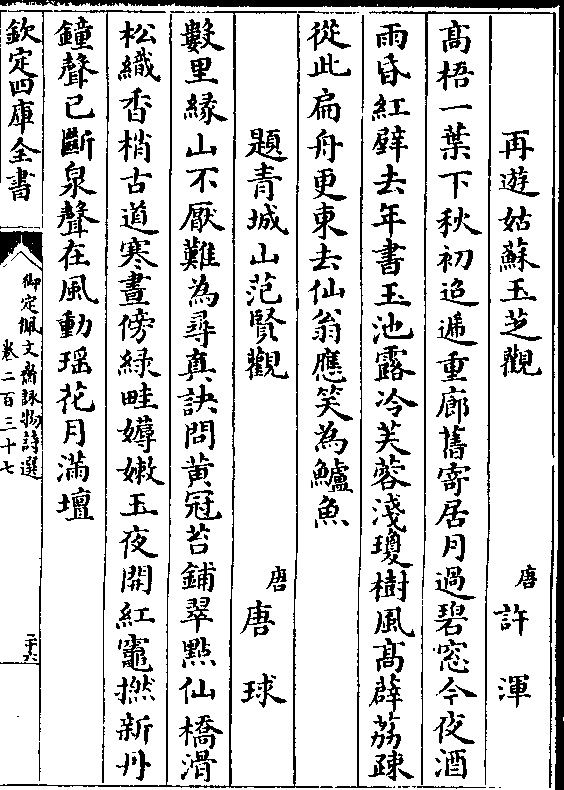 再遊姑蘇玉芝觀
唐 許渾
高梧一葉下秋初迢遞重廊舊寄居月過碧窓今夜酒
雨昏紅壁去年書玉池露冷芙蓉淺瓊樹風髙薜荔疎
從此扁舟更東去仙翁應笑為鱸魚
題青城山范賢觀
唐 唐球
數里緣山不厭難為尋真訣問黄冠苔鋪翠點仙橋滑
松織香梢古道寒晝傍綠畦薅嫩玉夜開紅竈撚新丹
鐘聲已斷泉聲在風動瑶花月滿壇
欽定四庫全書
御定佩文齋詠物詩選
卷二百三十七
二十六